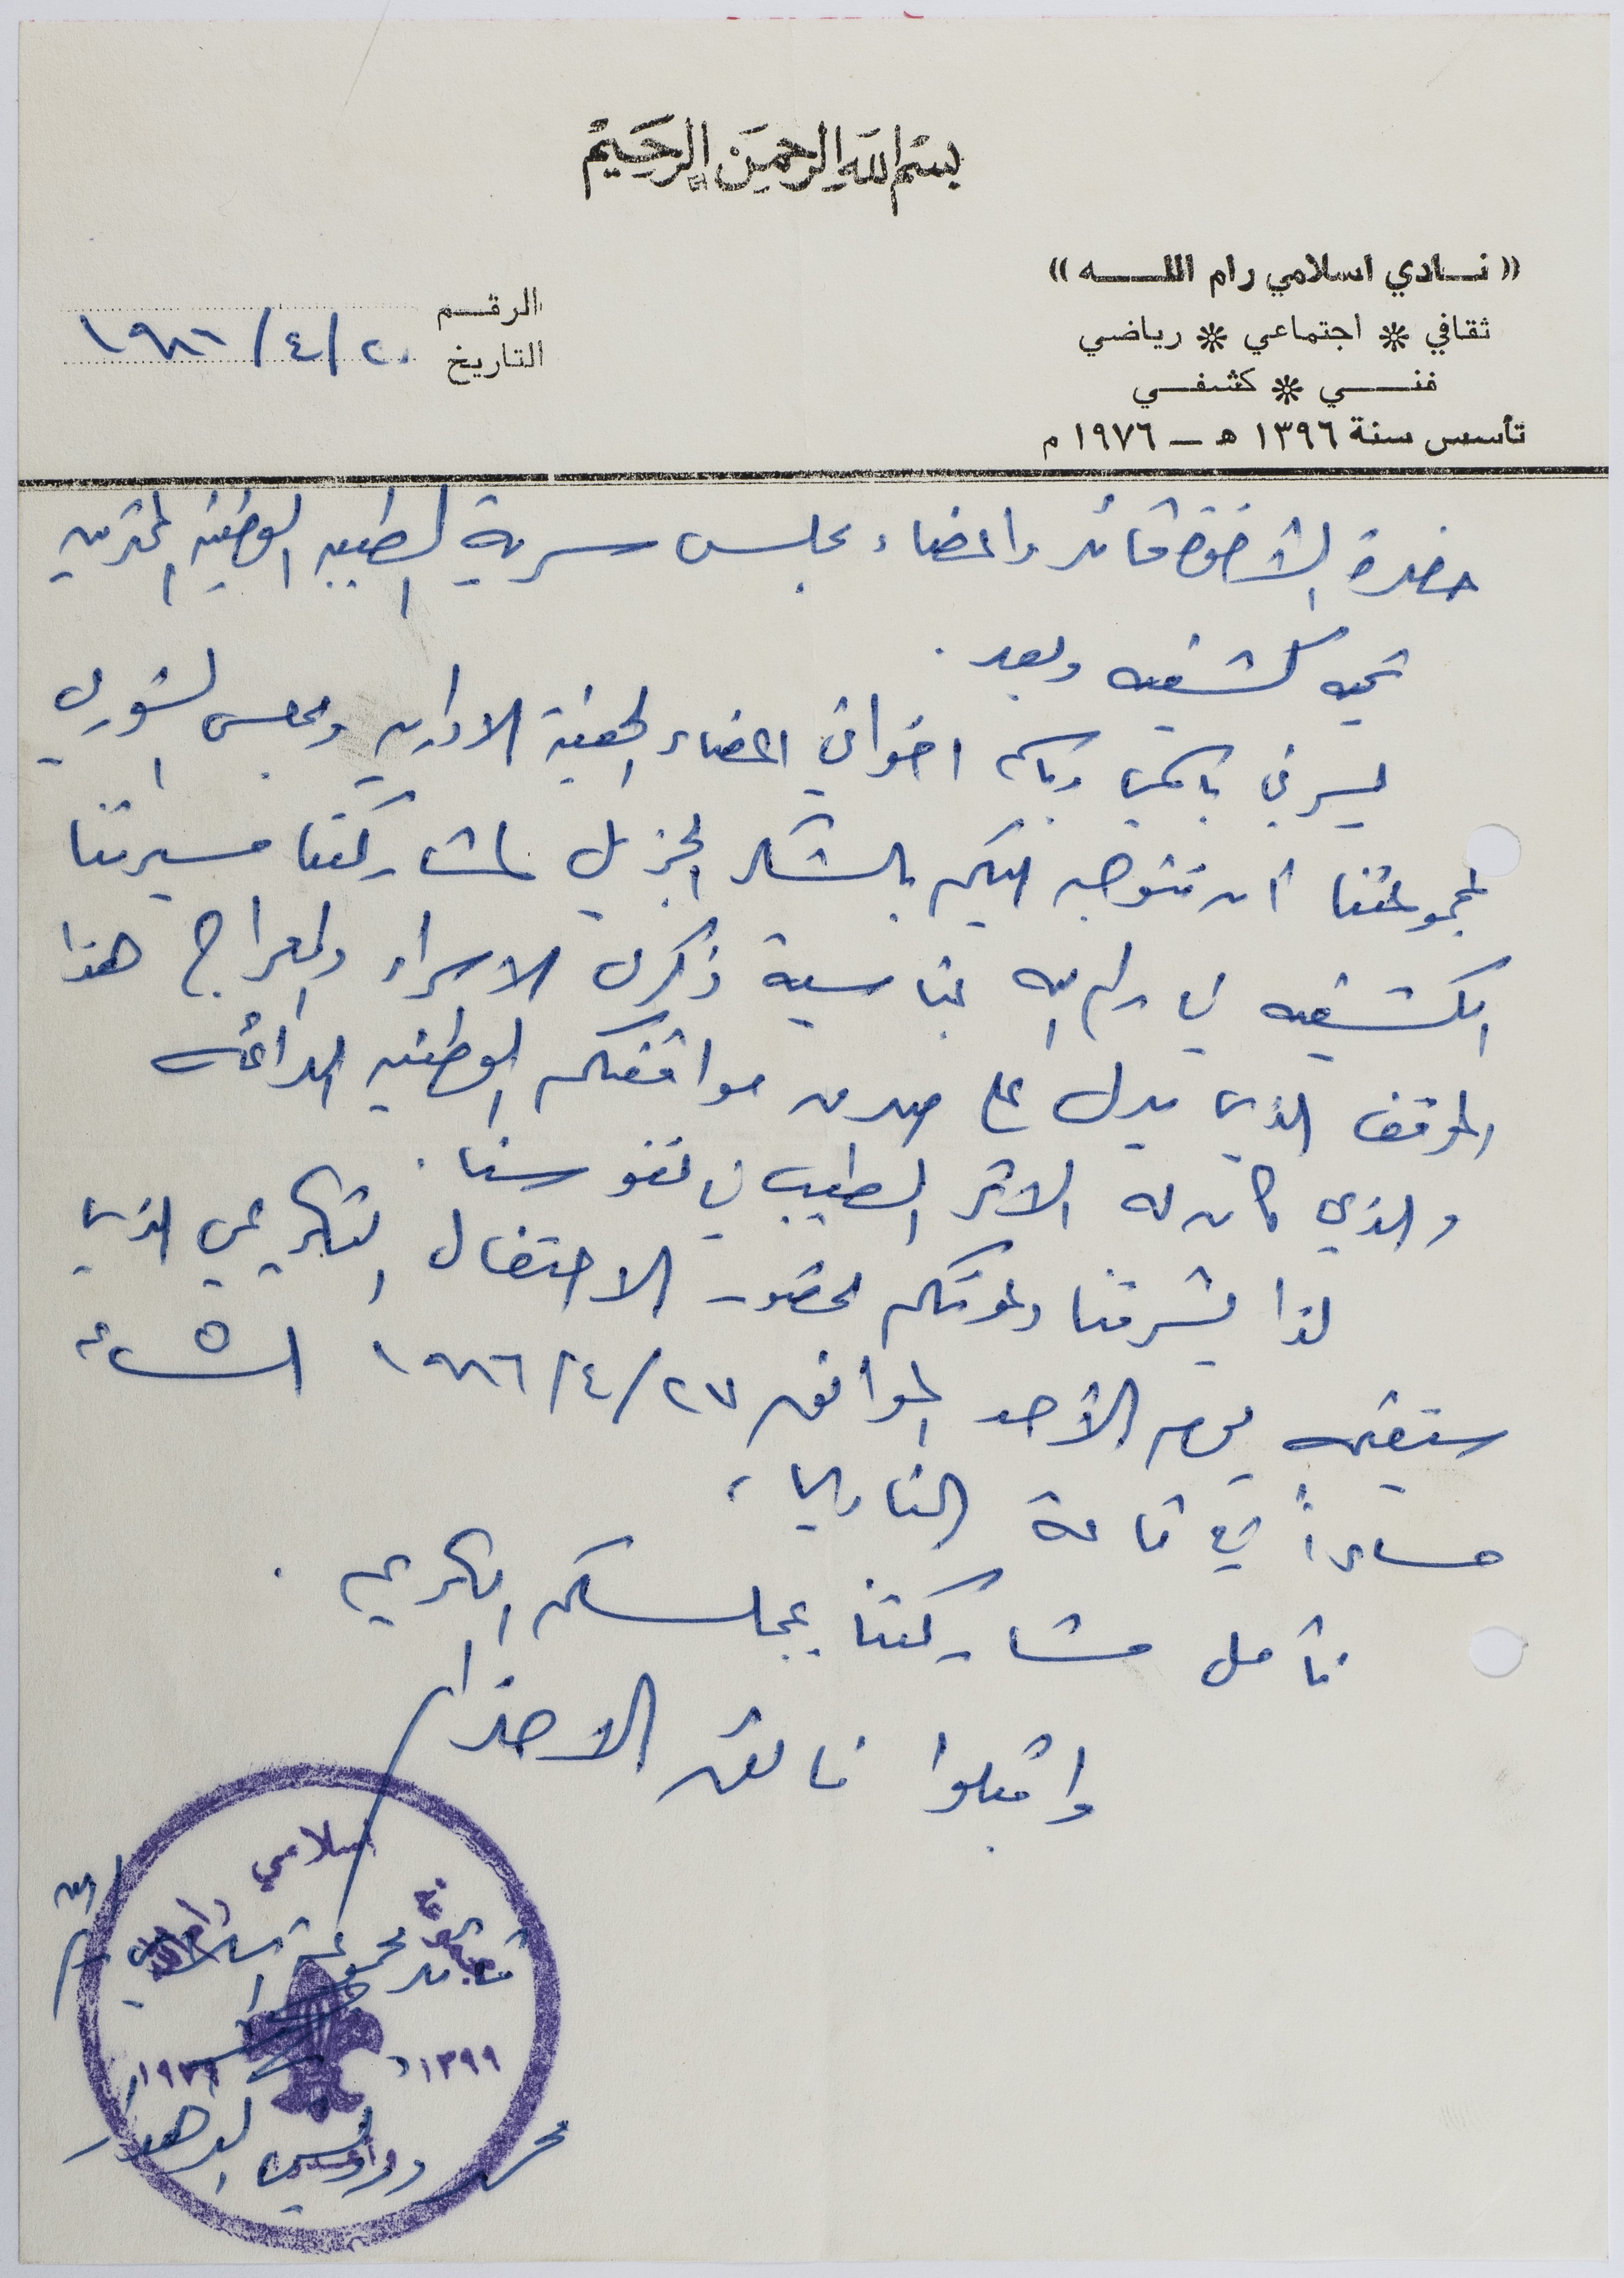 بسم الله الرحمن الرحيم
(( نادي اسلامي رام الله ))
ثقافي * اجتماعي * رياضي
فني * كشفي
تأسس سنة ١٣٩٦ هـ – ١٩٧٦ م
الرقم
التاريخ ٢٠/٤/١٩٨٦
حضرة الأخوة قائد واعضاء مجلس سرية الطيبه الوطنيه المحترمين
تحيه كشفيه وبعد .
يسرني باسمي وباسم اخواني اعضاء الهيئة الاداريه ومجلس الشورى
لمجموعتنا أن نتوجه اليكم بالشكر الجزيل لمشاركتنا مسيرتنا
الكشفيه في رام الله بمناسبة ذكرى الاسراء والمعراج هذا
الموقف الذي يدل على صدق مواقفكم الوطنيه الدائمه
والذي كان له الاثر الطيب في نفوسنا .
لذا يشرفنا دعوتكم لحضور الاحتفال التكريمي الذي
سنقيمه يوم الأحد الموافق ٢٧/٤/١٩٨٦ الساعه ٥
مساءاً في قاعة النادي ،
نأمل مشاركتنا بمجلسكم الكريم .
واقبلوا فائق الاحترام
اسلامي
مجموعة
قائد مجموعة اسلامي رام الله
١٣٩٩
محمد